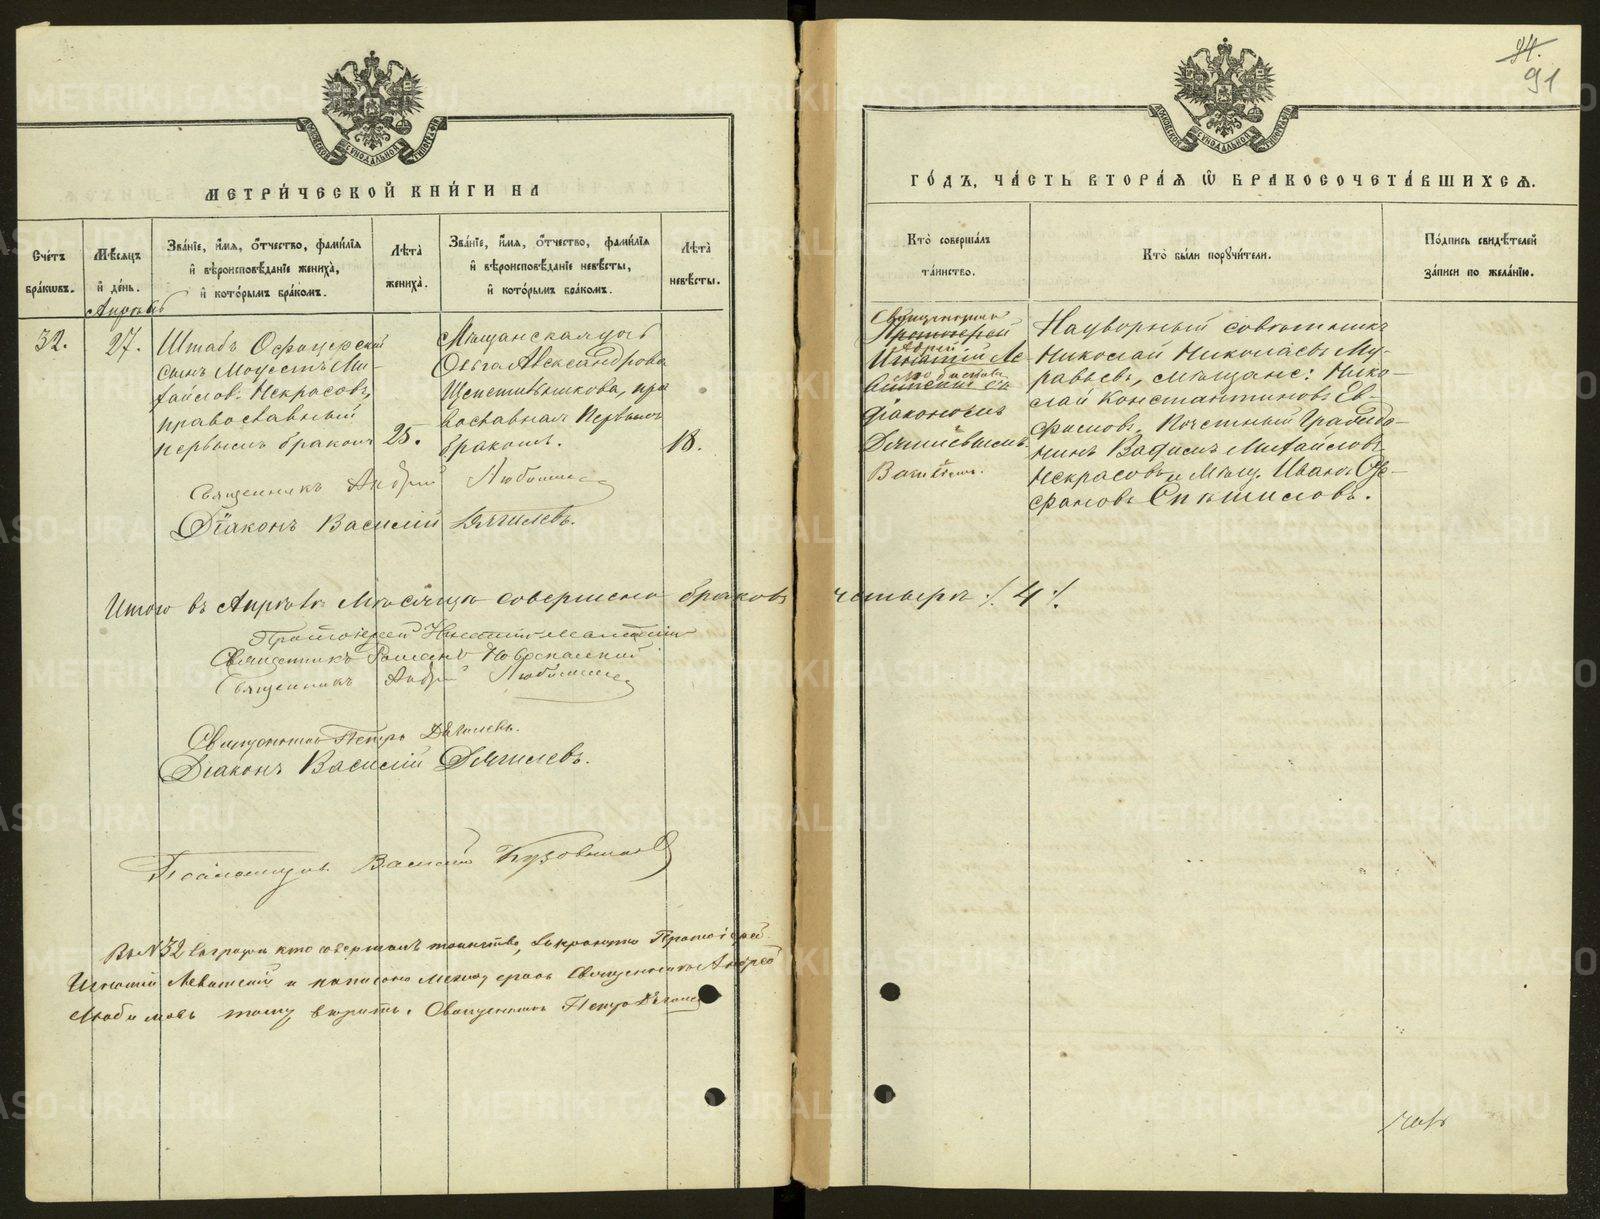 МЕТРИ́ЧЕСКОЙ КНИ́ГИ НА
Сче́тъ бра́кѡвъ.
Мѣ́сяцъ и҆ де́нь.
Зва́нїе, и҆́мѧ, ѻ҆́тчество, фами́лїѧ и҆ вѣроисповѣ́данїе жениха̀, и҆ кото́рымъ бра́комъ.
Лѣта̀ жениха̀.
Зва́нїе, и҆́мѧ, ѻ҆́тчество, фами́лїѧ и҆ вѣроисповѣ́данїе невѣ́сты, и҆ кото́рымъ бра́комъ.
Лѣта̀ невѣ́сты.
Апрѣль
32.
27.
Штабъ Офицерскій
сынъ Модестъ Ми-
хайловъ Некрасовъ,
православный
первымъ бракомъ
25.
Мѣщанская дочь
Ольга Александрова
Щепетильникова, пра
вославная первымъ
бракомъ.
18.
Священникъ Андрей Любимовъ
Дїаконъ Василій Дягилевъ.
Итого въ Апрѣлѣ мѣсяцѣ совершено браковъ четыре ./. 4 ./.
Протоіерей Игнатій Левитскій
Священникъ
Священникъ Андрей Любимовъ
Священникъ Петръ Дягилевъ.
Дїаконъ Василій Дягилевъ.
Псаломщикъ Василій
Въ №32 въ графѣ кто совершалъ таинство, зачеркнуто Протоіерей
Игнатій Левитскій и написано между строкъ Священникъ Андрей
Любимовъ тому вѣрить. Священникъ Петръ Дягилевъ
91.
91
ГО́ДЪ, ЧА́СТЬ ВТОРА́Ѧ Ѽ БРАКОСОЧЕТА́ВШИХСѦ.
Кто̀ соверша́лъ та́инство.
Кто̀ бы́ли порꙋчи́тели.
По́дпись свидѣ́телей за́писи по жела́нїю.
Священникъ
Протоіерей
Андрей
Игнатій Ле
Любимовъ
витскій съ
Діакономъ
Дягилевымъ
Василіемъ.
Надворный совѣтникъ
Николай Николаевъ Му-
равьевъ, мѣщане: Нико-
лай Константиновъ Ев-
фимовъ, Почетный Гражда-
нинъ Вадимъ Михайловъ
Некрасовъ и Мѣщ. Иванъ